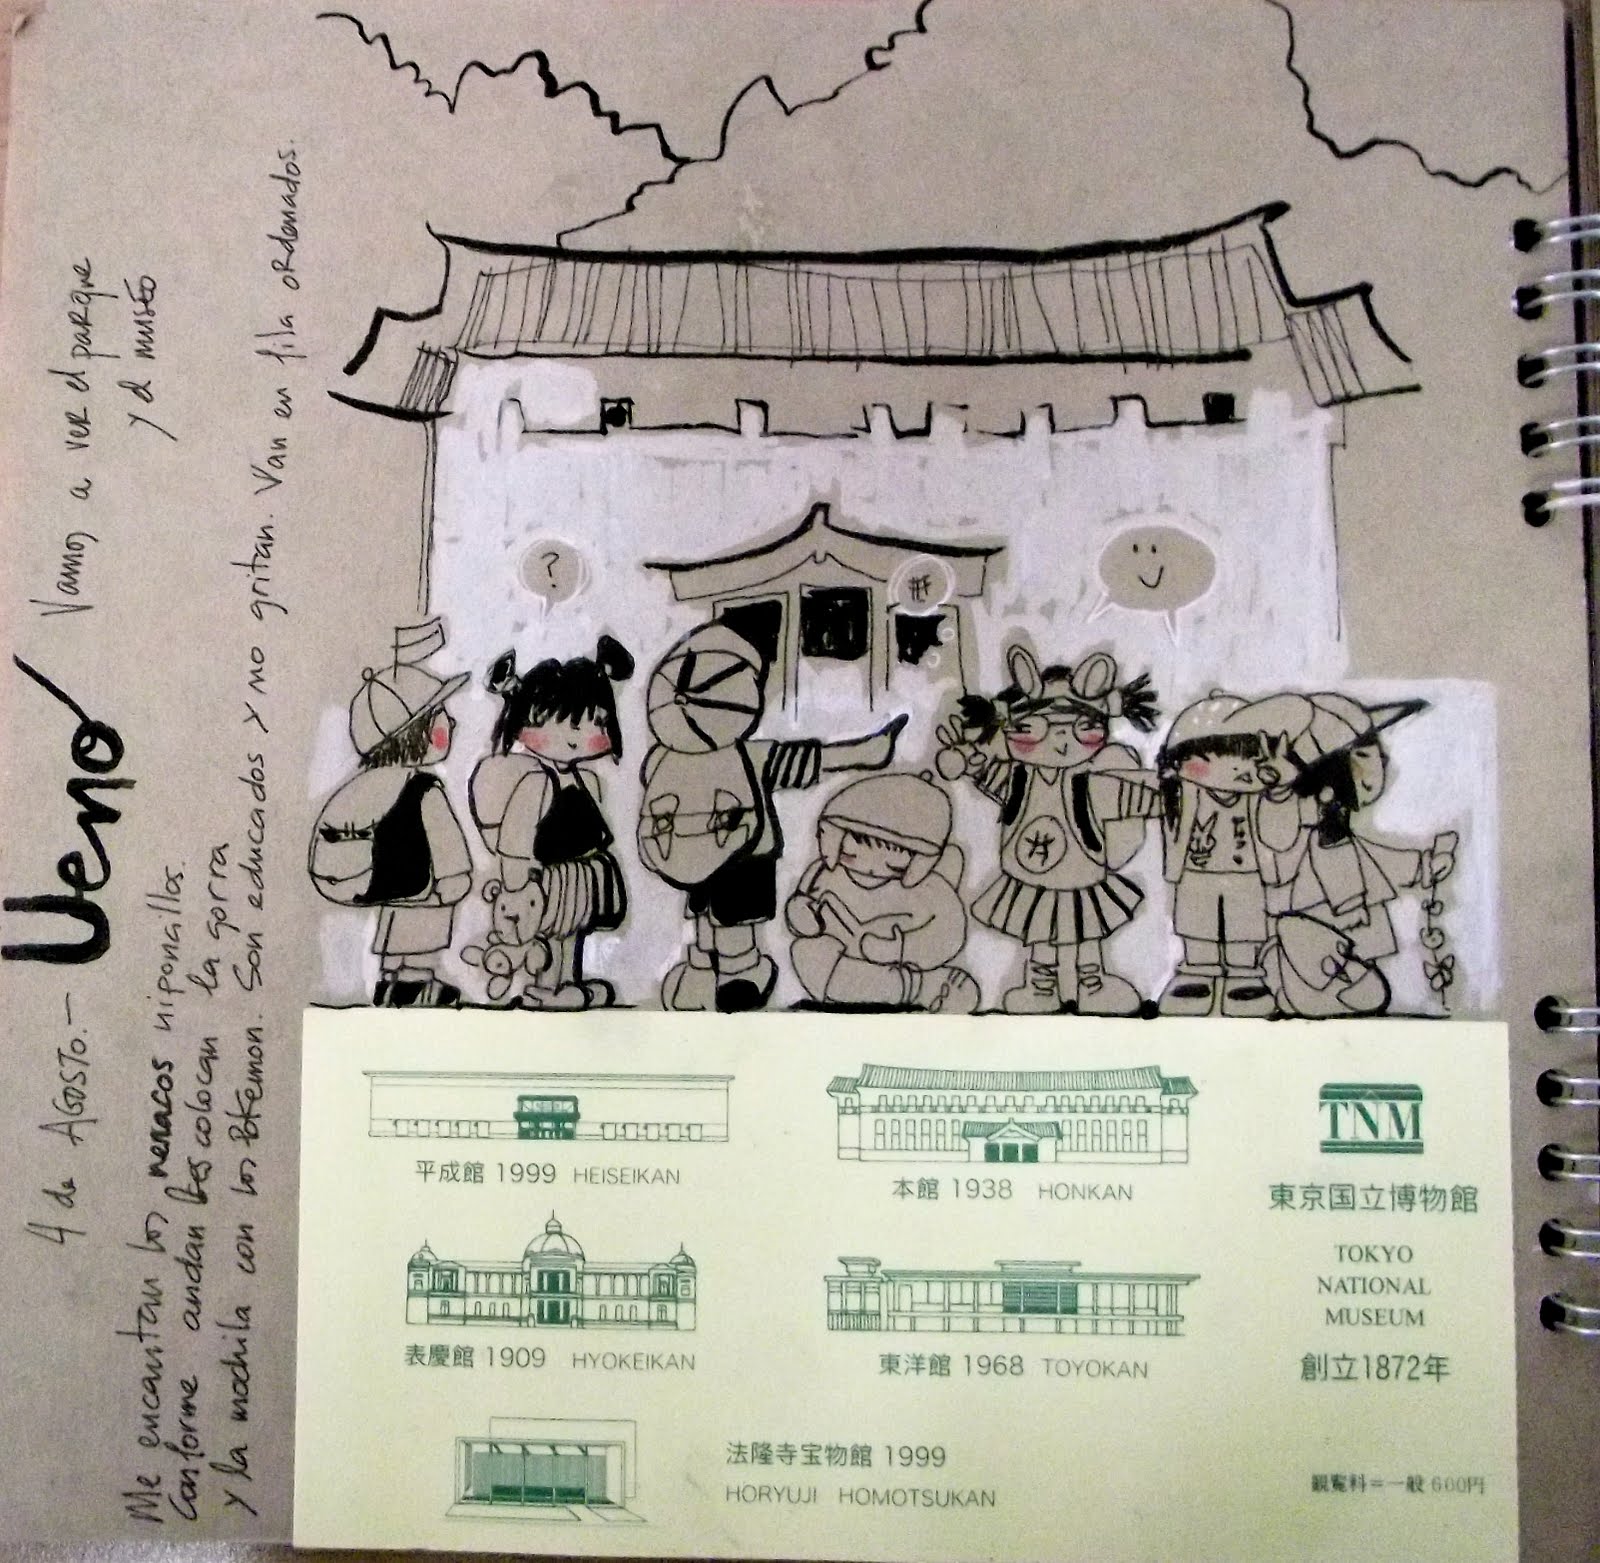 4 de AGOSTO.—
Ueno
Vamos a ver el parque
y el museo
Me encantan los nenacos niponcillos.
Conforme andan les colocan la gorra
y la mochila con los Pokemon. Son educados y no gritan. Van en fila ordenados.
?
#
#
平成館 1999 HEISEIKAN
本館 1938 HONKAN
TNM
東京国立博物館
TOKYO
NATIONAL
MUSEUM
創立1872年
表慶館 1909 HYOKEIKAN
東洋館 1968 TOYOKAN
法隆寺宝物館 1999
HORYUJI HOMOTSUKAN
観覧料=一般 600円